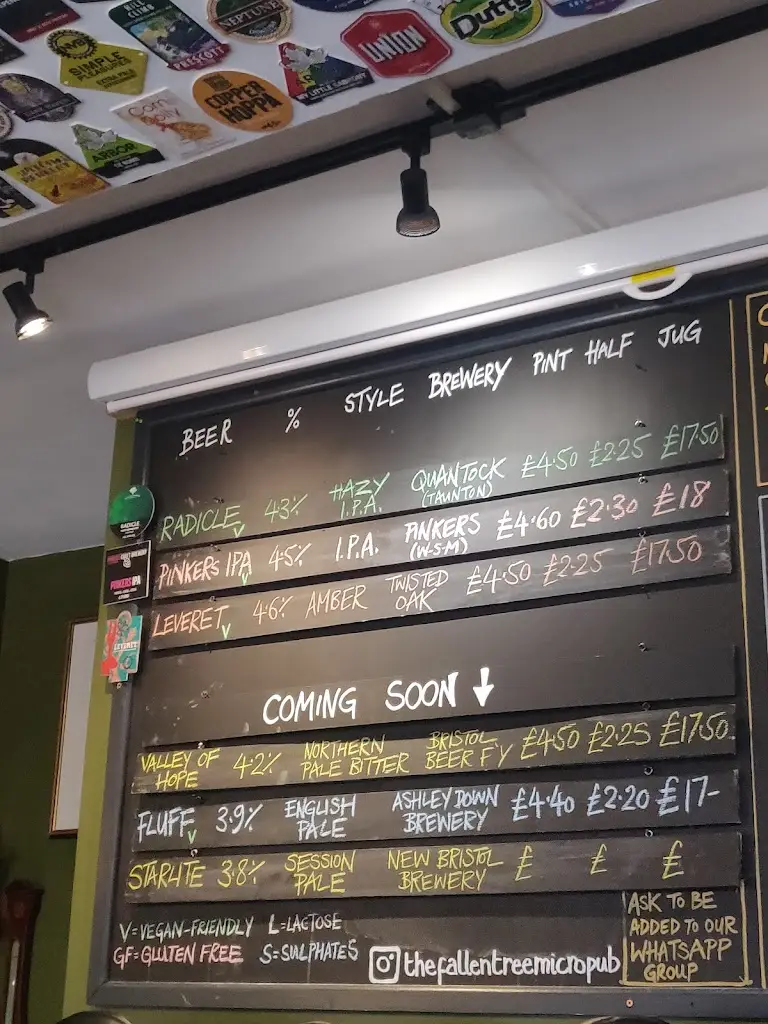 HILL CLIMB
PRESCOTT
NEPTUNE
Dutty
UNION
SIMPLE PLEASURES
EXTRA PALE
COPPER HOPPA
MY LITTLE
Corn
ARBOR
BEER % STYLE BREWERY PINT HALF JUG
RADICLE V 4.3% HAZY I.P.A. QUANTOCK (TAUNTON) £4.50 £2.25 £17.50
PINKERS IPA V 4.5% I.P.A. PINKERS (W-S-M) £4.60 £2.30 £18
LEVERET V 4.6% AMBER TWISTED OAK £4.50 £2.25 £17.50
RADICLE
PINKERS IPA
LEVERET
COMING SOON ↓
VALLEY OF HOPE 4.2% NORTHERN PALE BITTER BRISTOL BEER F'Y £4.50 £2.25 £17.50
FLUFF V 3.9% ENGLISH PALE ASHLEY DOWN BREWERY £4.40 £2.20 £17-
STARLITE 3.8% SESSION PALE NEW BRISTOL BREWERY £ £ £
V=VEGAN-FRIENDLY L=LACTOSE
GF=GLUTEN FREE S=SULPHATES
thefallentreemicropub
ASK TO BE
ADDED TO OUR
WHATSAPP
GROUP